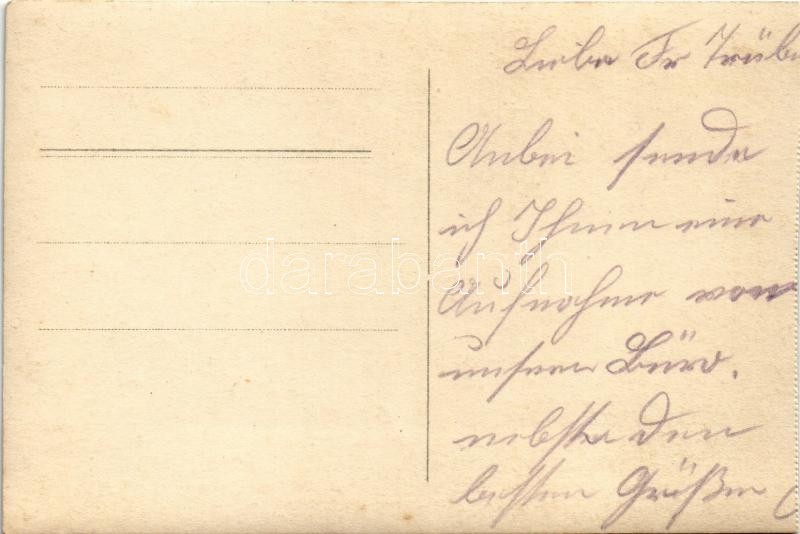 Liebe Fr Trüb
Anbei sende
ich Ihnen eine
Aufnahme von
unseren Büro.
nebst den
besten Grüßen
darabanth